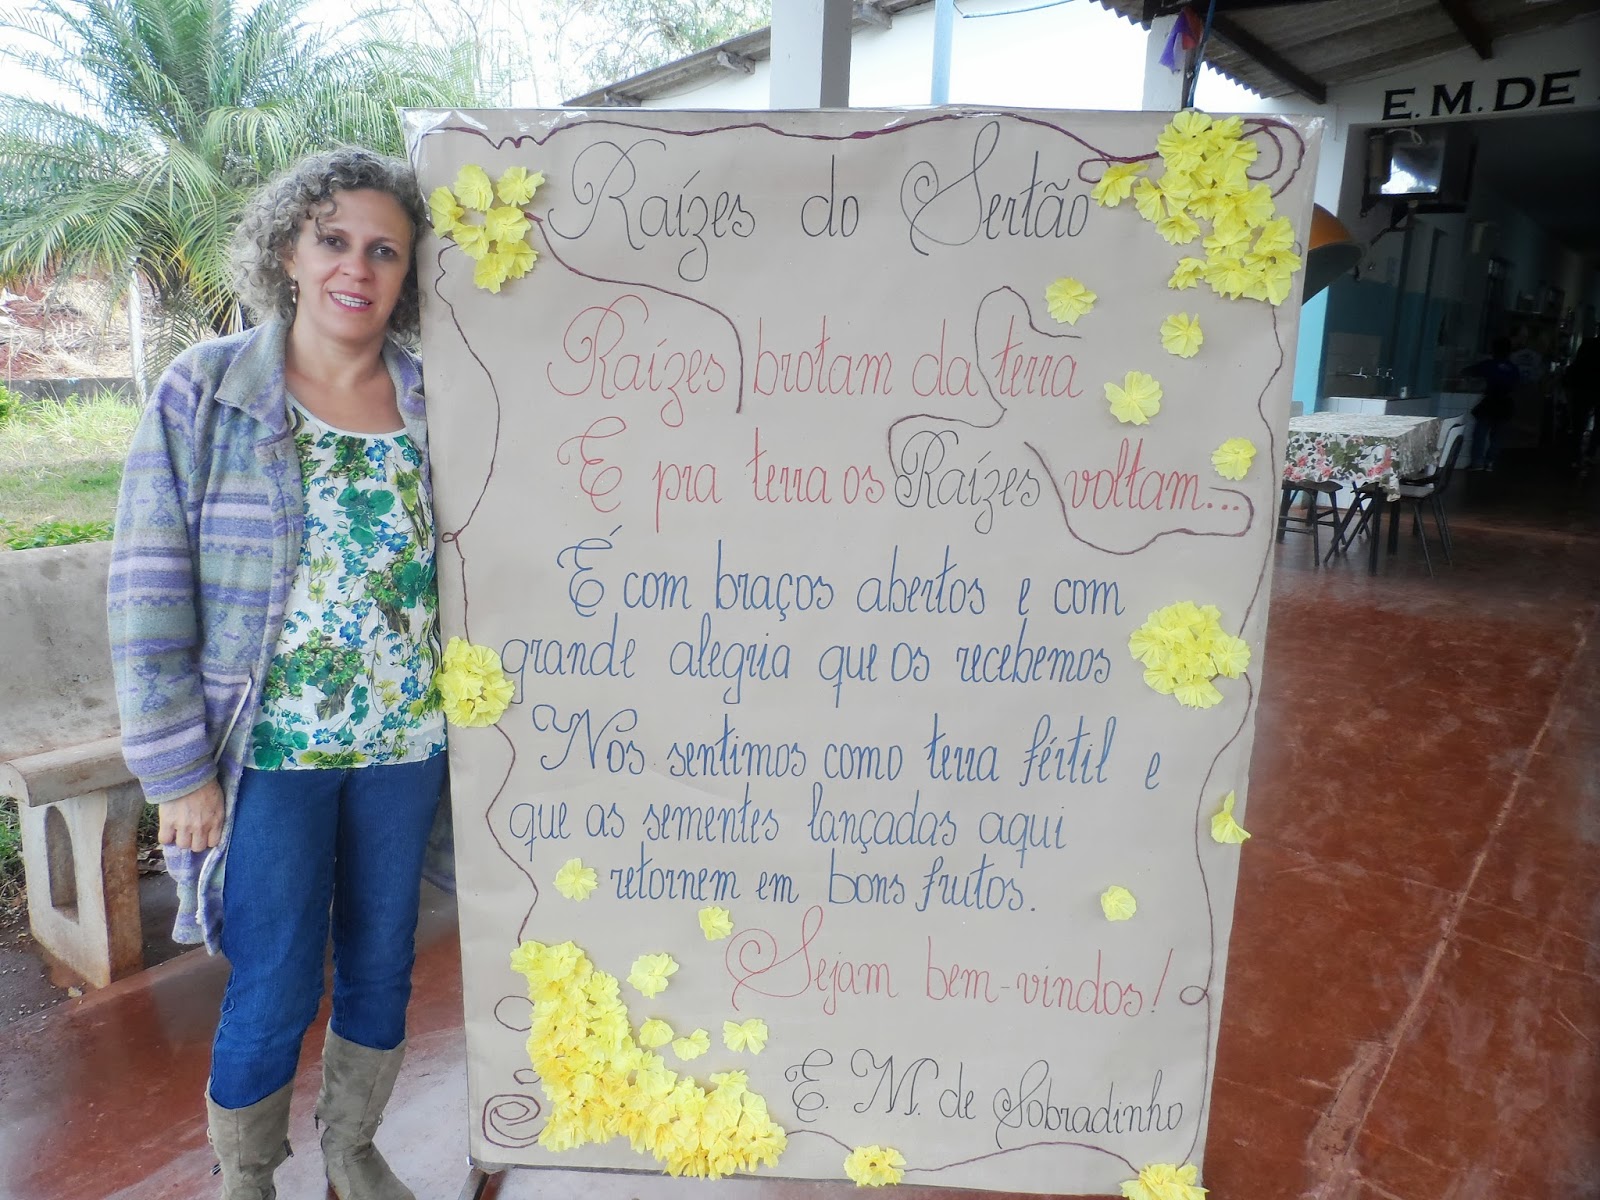 E. M. DE
Raízes do Sertão
Raízes brotam da terra
E pra terra os Raízes voltam...
É com braços abertos e com
grande alegria que os recebemos
Nós sentimos como terra fértil e
que as sementes lançadas aqui
retornem em bons frutos.
Sejam bem-vindos!
E. M. de Sobradinho